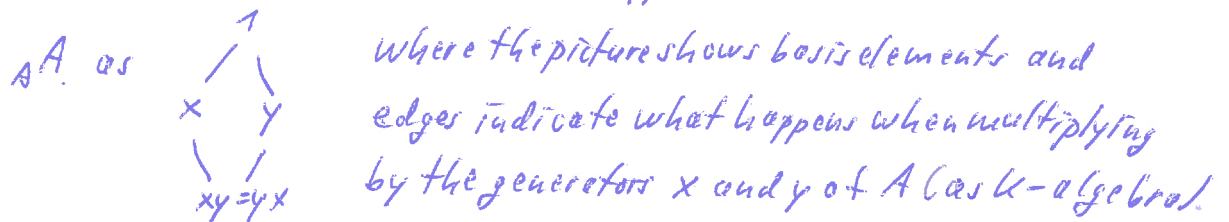 1
_A A. as where the picture shows basis elements and
x y edges indicate what happens when multiplying
xy=yx by the generators x and y of A (as K-algebra).